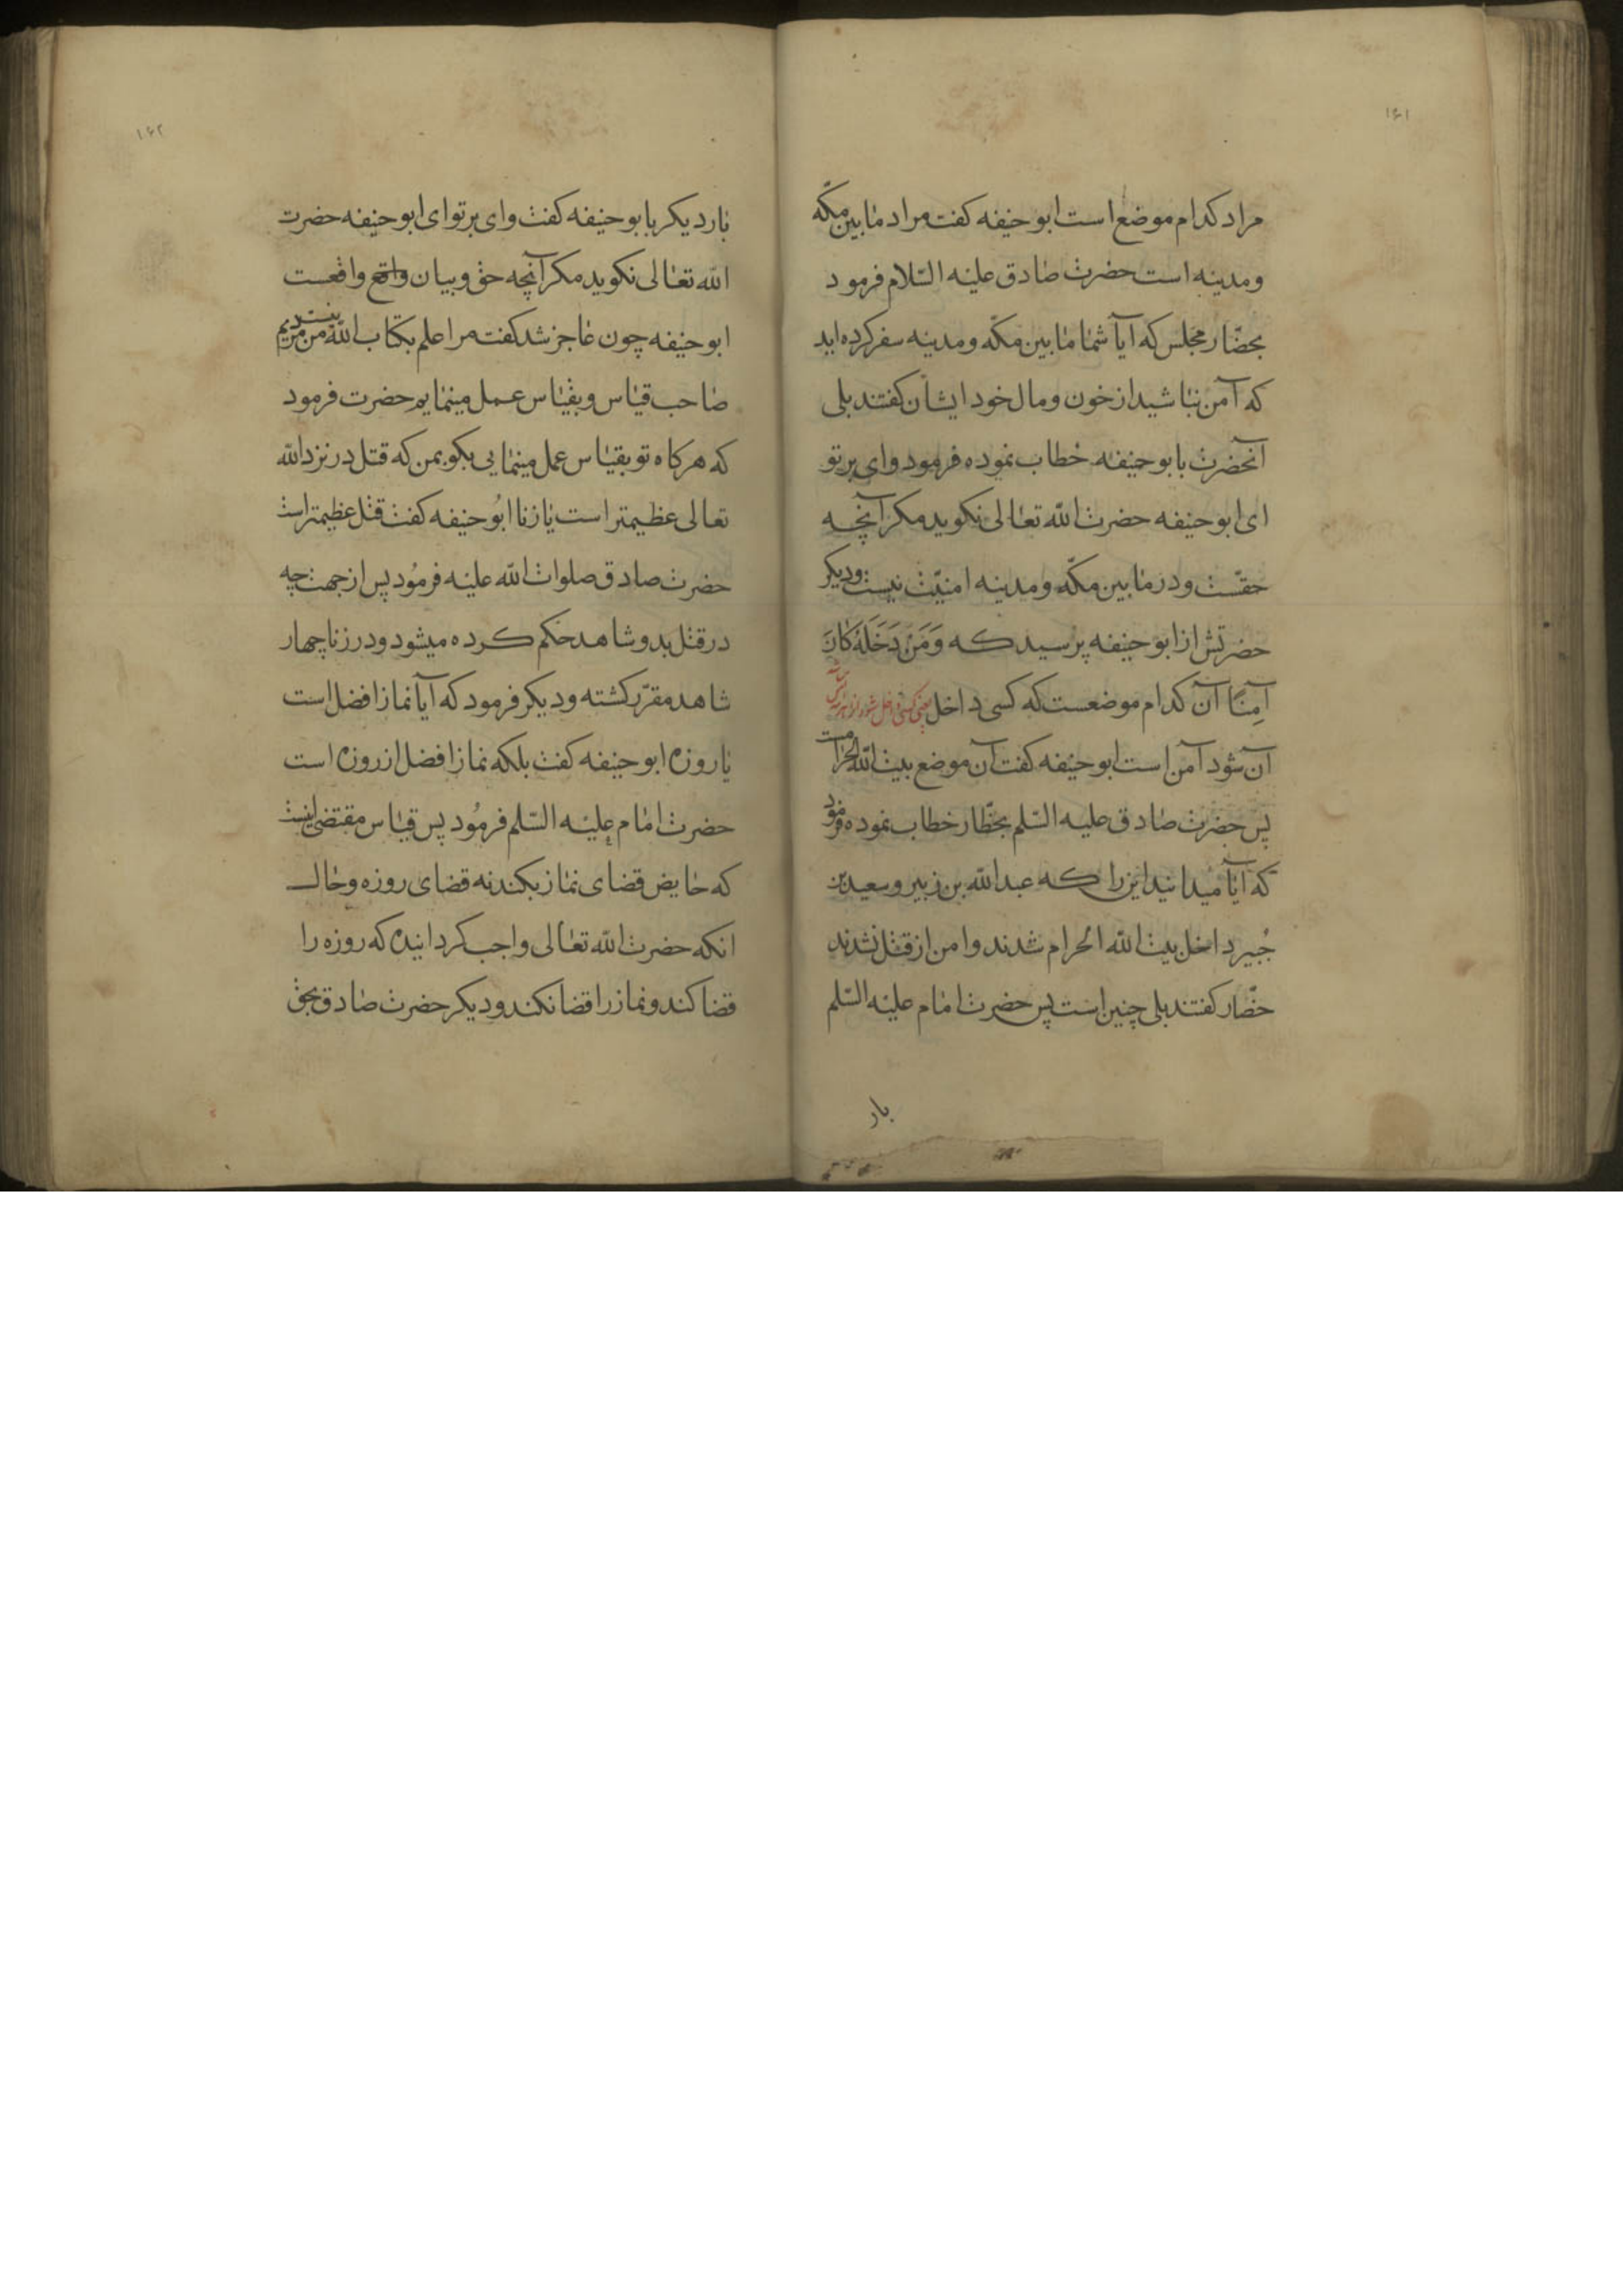 ۱۶۱
مراد کدام موضع است ابو حنیفه کفت مراد مابین مکّه
و مدینه است حضرت صادق علیه السّلام فرمود
بحضّار مجلس که آیا شما مابین مکّه و مدینه سفر کرده اید
که آمن نباشید از خون و مال خود ایشان کفتند بلی
آنحضرت بابو حنیفه خطاب نموده فرمود وای بر تو
ای ابو حنیفه حضرت اللّه تعالی نکوید مکر آنچه
حقّست و در مابین مکّه و مدینه امنیّت نیست و دیکر
حضرتش از ابو حنیفه پرسید که وَمَنْ دَخَلَهُ کانَ
آمِنًا آن کدام موضعست که کسی داخل
آن شود آمن است ابو حنیفه کفت آن موضع بیت اللّه الحرام است
پس حضرت صادق علیه السّلم بحضّار خطاب نموده فرمود
که آیا میدانید اینرا که عبد اللّه بن زبیر و سعید بن
جُبیر داخل بیت اللّه الحرام شدند و امن از قتل نشدند
حضّار کفتند بلی چنین است پس حضرت امام علیه السّلم
بار
۱۶۲
بار دیکر بابو حنیفه کفت وای بر تو ای ابو حنیفه حضرت
اللّه تعالی نکوید مکر آنچه حق و بیان واقع واقعست
ابو حنیفه چون عاجز شد کفت مرا علم بکتاب اللّه نیست من مردیم
صاحب قیاس و بقیاس عمل مینمایم حضرت فرمود
که هرکاه تو بقیاس عمل مینمایی بکو بمن که قتل در نزد اللّه
تعالی عظیمتر است یا زنا ابُو حنیفه کفت قتل عظیمتر است
حضرت صادق صلوات اللّه علیه فرمُود پس از جهت چه
در قتل بدو شاهد حکم کرده میشود و در زنا چهار
شاهد مقرّر کشته و دیکر فرمود که آیا نماز افضل است
یا روزه ابو حنیفه کفت بلکه نماز افضل از روزه است
حضرت امام علیه السّلم فرمُود پس قیاس مقتضی اینست
که حایض قضای نماز بکند نه قضای روزه و حال
انکه حضرت اللّه تعالی واجب کردانیده که روزه را
قضا کند و نماز را قضا نکند و دیکر حضرت صادق بحق